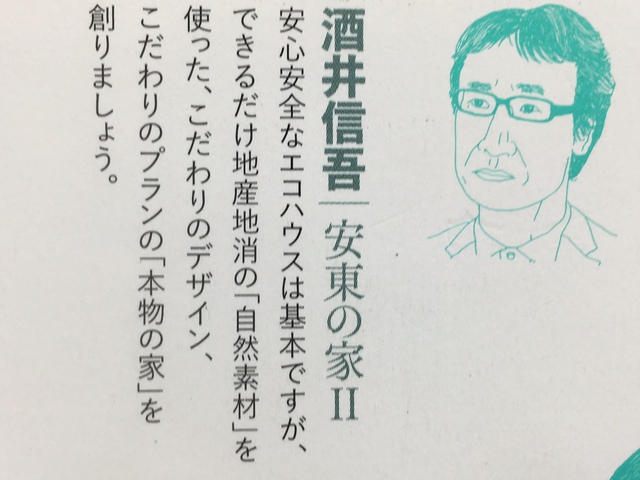 酒井信吾|安東の家II
安心安全なエコハウスは基本ですが、
できるだけ地産地消の「自然素材」を
使った、こだわりのデザイン、
こだわりのプランの「本物の家」を
創りましょう。